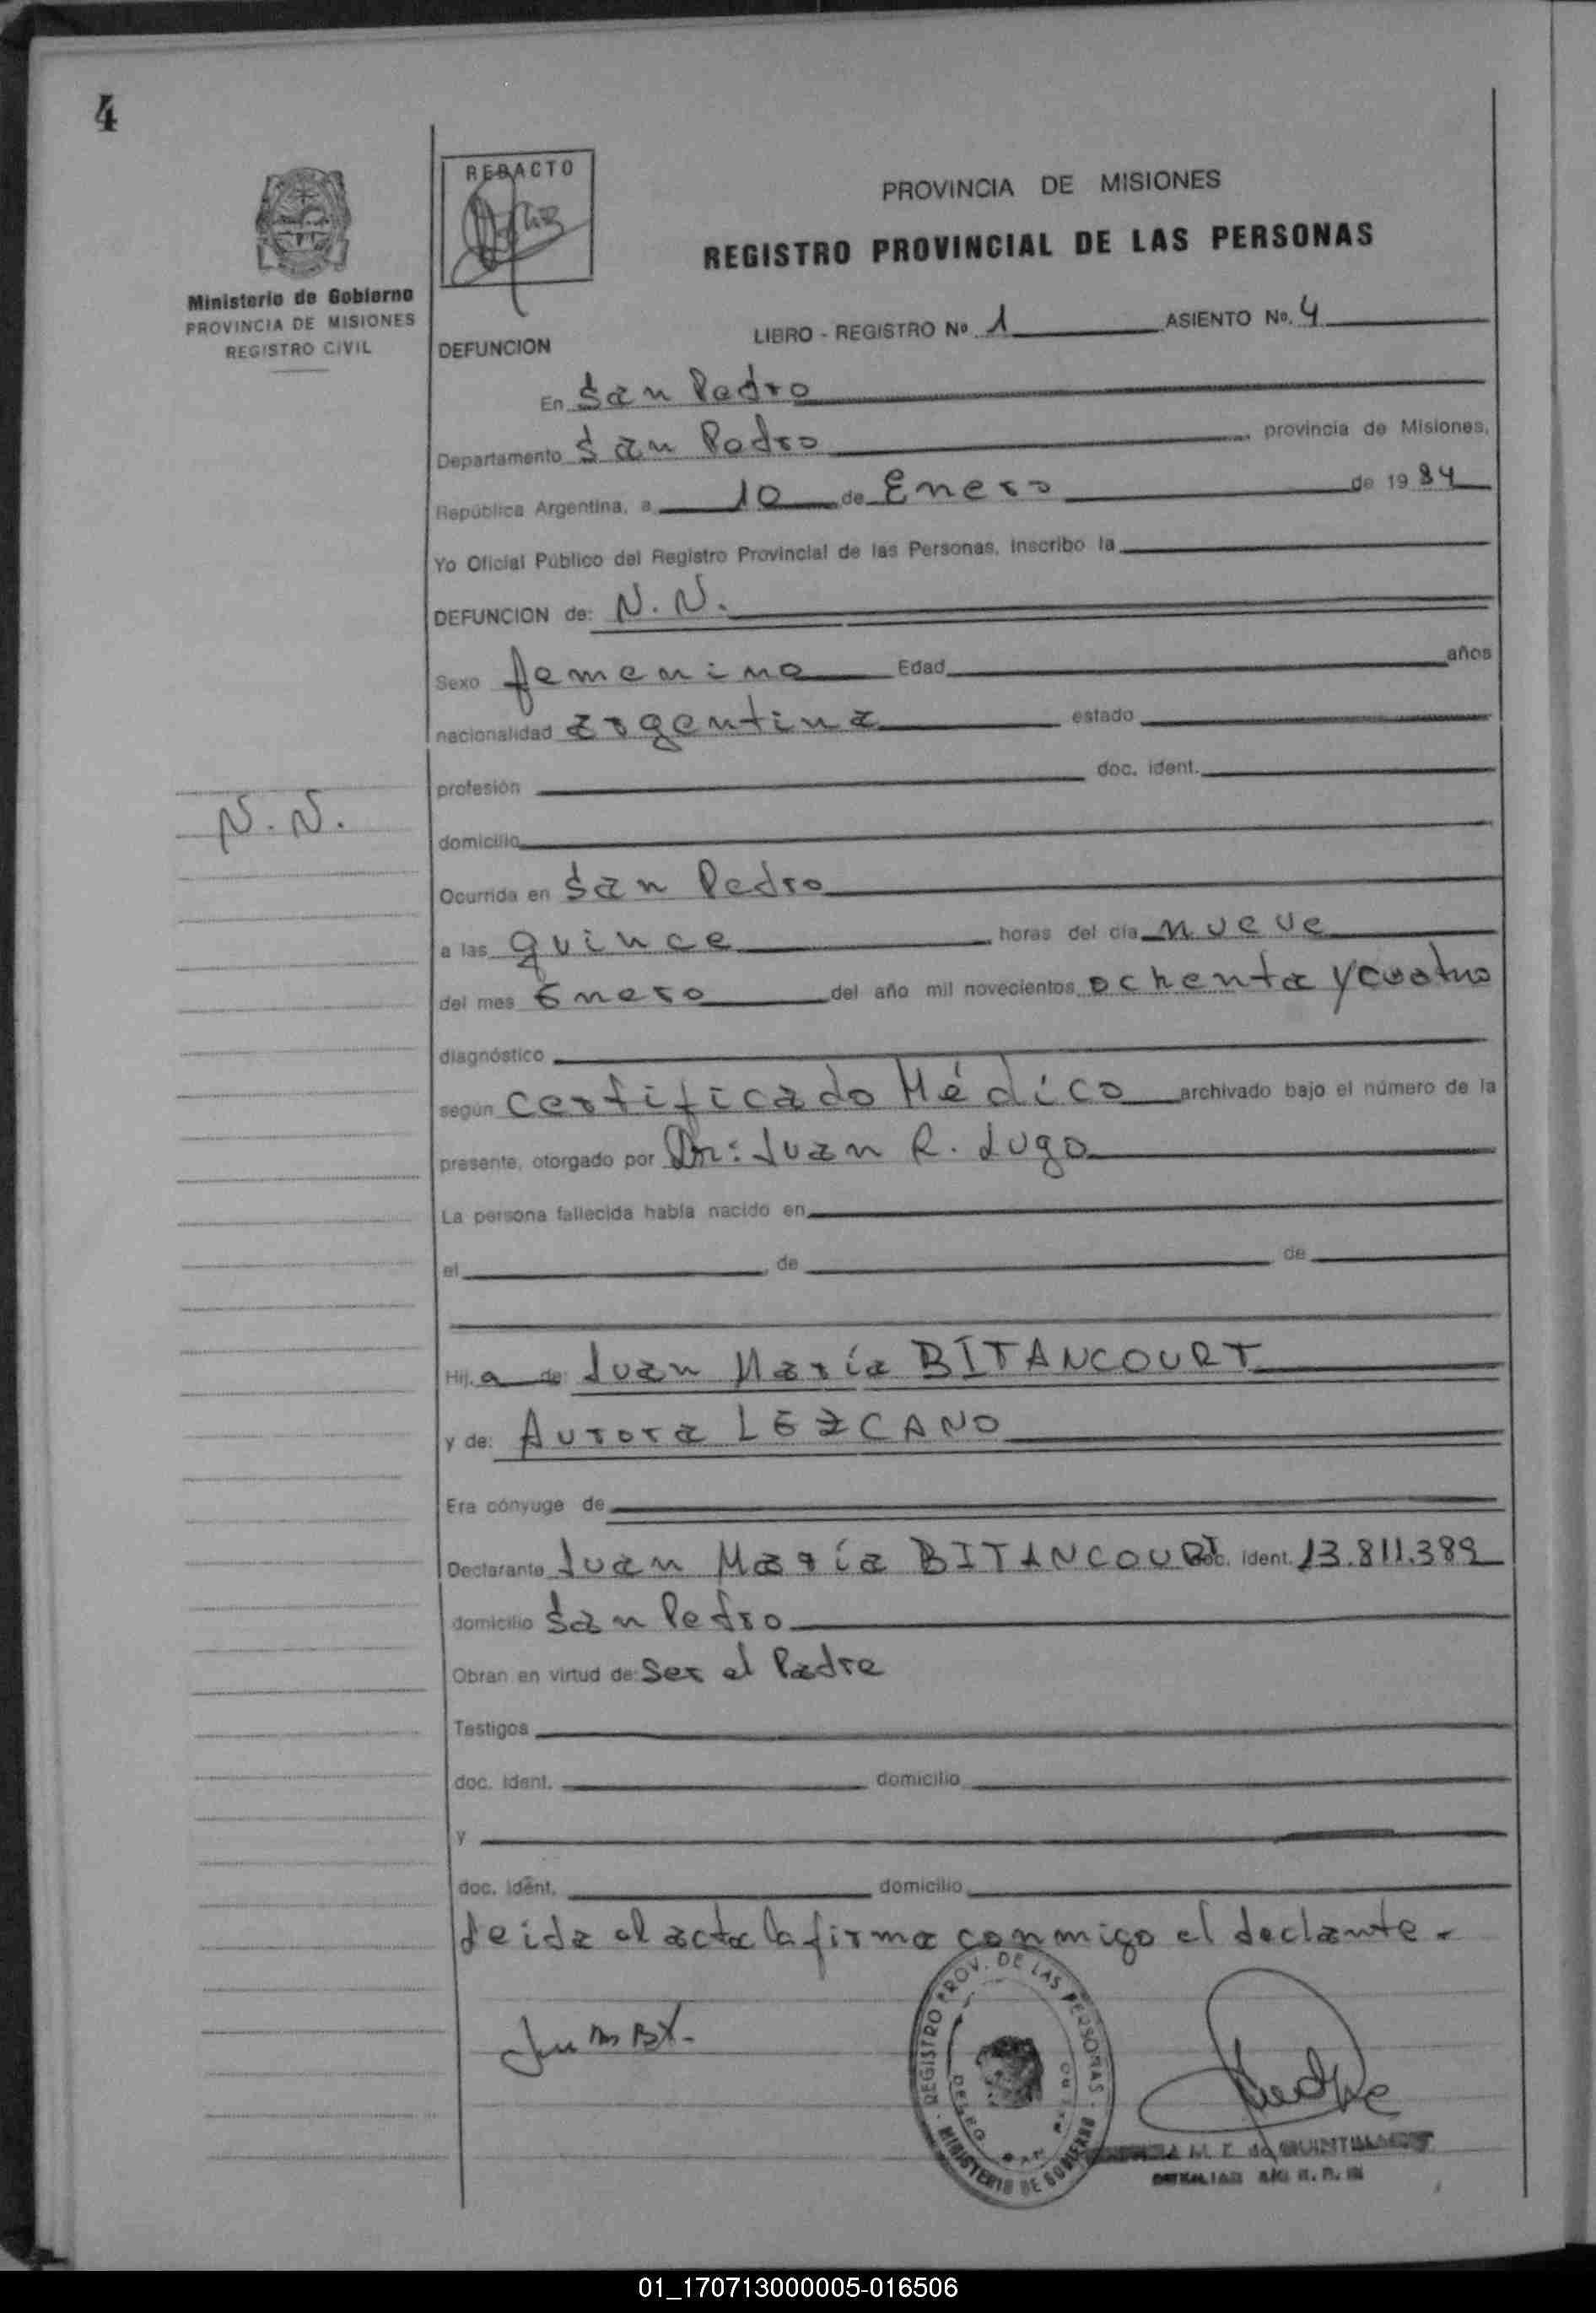 4
REDACTO
PROVINCIA DE MISIONES
REGISTRO PROVINCIAL DE LAS PERSONAS
Ministerio de Gobierno
PROVINCIA DE MISIONES
REGISTRO CIVIL
LIBRO - REGISTRO Nº 1 ASIENTO Nº. 4
DEFUNCION
En San Pedro
Departamento San Pedro, provincia de Misiones,
República Argentina, a 10 de Enero de 1984
Yo Oficial Público del Registro Provincial de las Personas, inscribo la
DEFUNCION de: N. N.
Sexo femenino Edad años
nacionalidad argentina estado
profesión doc. ident.
N. N.
domicilio
Ocurrida en San Pedro
a las quince horas del día nueve
del mes Enero del año mil novecientos ochenta y cuatro
diagnóstico
según Certificado Médico archivado bajo el número de la
presente, otorgado por Dr: Juan R. Lugo
La persona fallecida había nacido en
el , de de
Hij a de: Juan María BITANCOURT
y de: Aurora LEZCANO
Era cónyuge de
Declarante Juan María BITANCOURT doc. ident. 13.811.389
domicilio San Pedro
Obran en virtud de: Ser el Padre
Testigos
doc. ident. domicilio
y
doc. ident. domicilio
Leida el acta la firma conmigo el declante.
REGISTRO PROV. DE LAS PERSONAS
MINISTERIO DE GOBIERNO
M. E. de QUINTANA
01_170713000005-016506